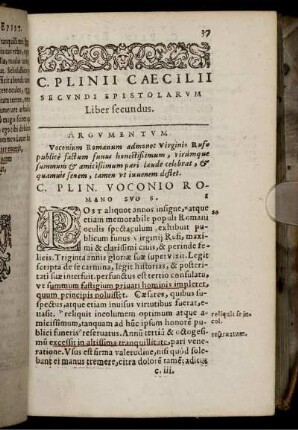 37
C. PLINII CAECILII
SECVNDI EPISTOLARVM
Liber secundus.
ARGVMENTVM.
Voconium Romanum admonet Virginio Rufo
publicè factum funus honestissimum, virumque
summum & amicissimum pari laude celebrat, &
quamuis senem, tamen vt iuuenem deflet.
C. PLIN. VOCONIO RO-
MANO SVO S.
POst aliquot annos insigne, atque
etiam memorabile populi Romani
oculis spectaculum, exhibuit pu-
blicum funus Virginij Rufi, maxi-
mi & clarissimi ciuis, & perinde fe-
licis. Triginta annis gloriæ suæ superuixit. Legit
scripta de se carmina, legit historias, & posteri-
tati suæ interfuit. perfunctus est tertio consulatu,
vt summum fastigium priuati hominis impleret,
quum principis noluisset. Cæsares, quibus su-
spectus, atque etiam inuisus virtutibus fuerat, e-
uasit. reliquit incolumem optimum atque a-
micissimum, tanquam ad hunc ipsum honorē pu-
blici funeris reseruatus. Annū tertiū & octoges-
imū excessit in altissima tranquillitate, pari vene-
ratione. Vsus est firma valetudine, nisi quòd sole-
bant ei manus tremere, citra dolorē tamē; aditus
c. iii.